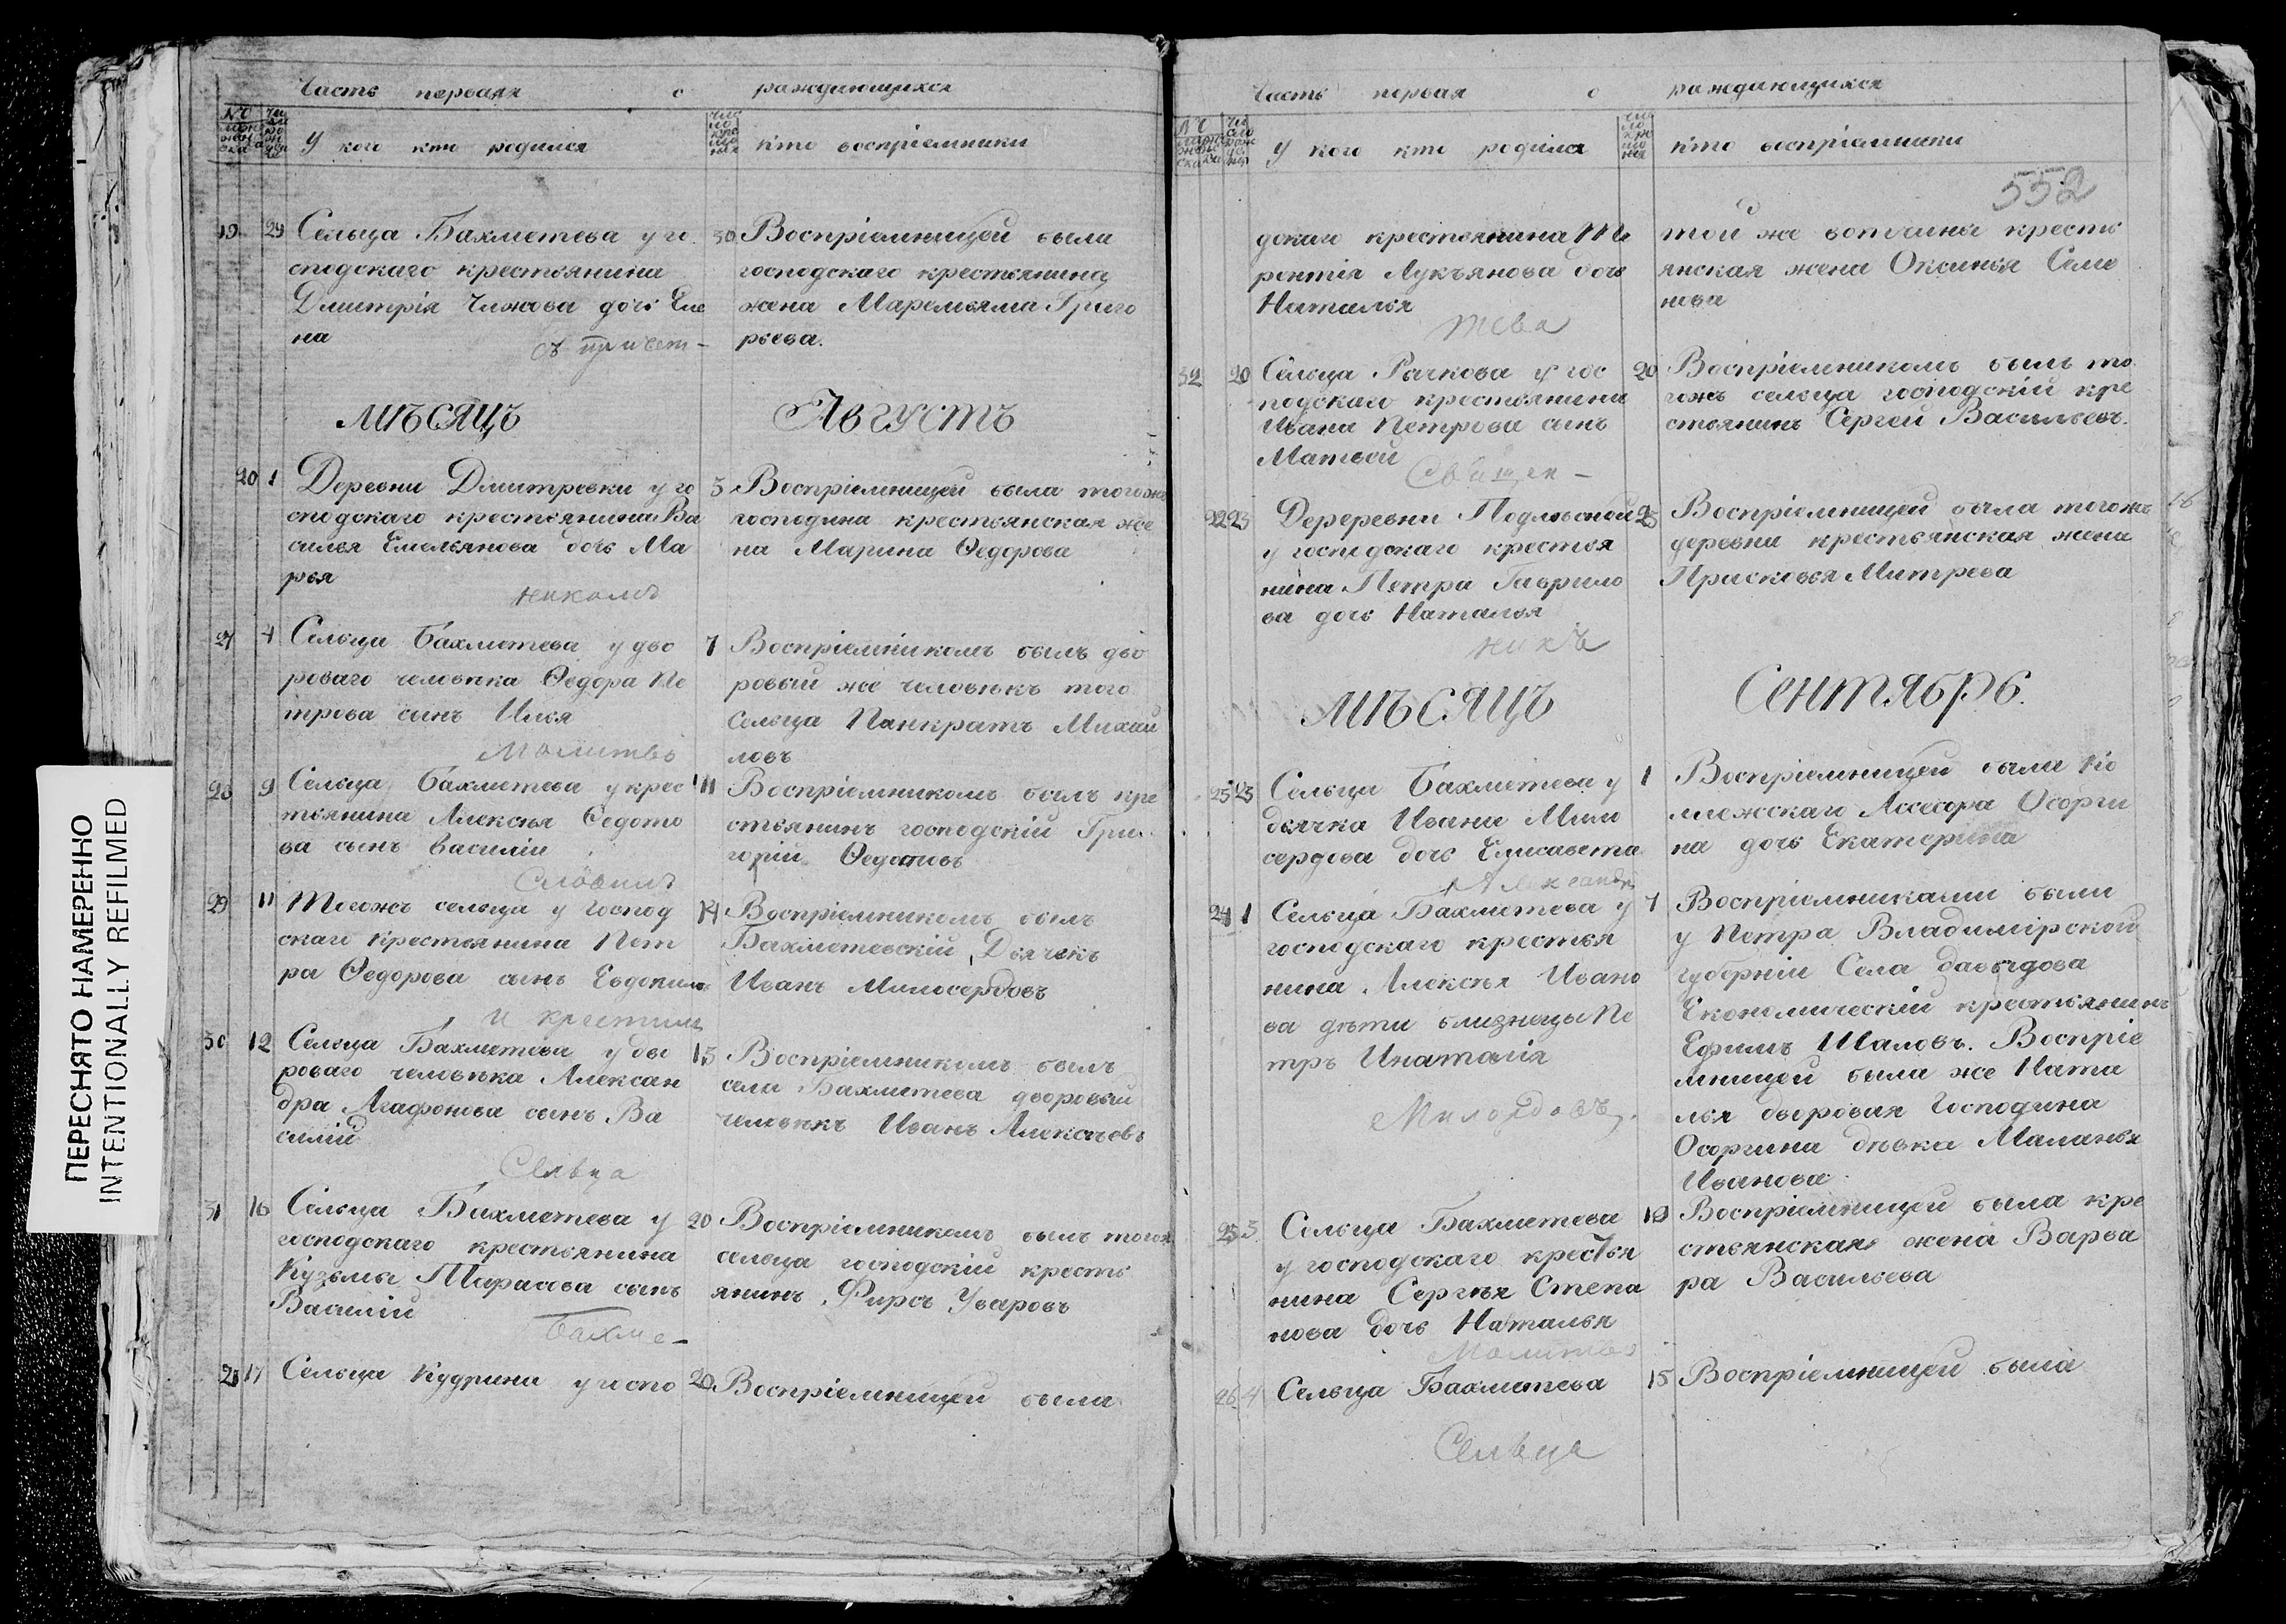 ПЕРЕСНЯТО НАМЕРЕННО
INTENTIONALLY REFILMED
Часть первая о раждающихся
У кого кто родился
Кто восприемники
19 29 Сельца Бахметева у го
сподскаго крестьянина
Дмитрія Чижова дочь Еле
на
съ причет-
30 Воспріемницей была
господскаго крестьянина
жена Маремьяма Григо
рьева.
МѢСЯЦЪ Августъ
20 1 Деревни Дмитревки у го
сподскаго крестьянина Ва
силья Емельянова дочь Ма
рья
никомъ
3 Воспріемницей была тогоже
господина крестьянская же
на Марина Ѳедорова
27 4 Сельца Бахметева у дво
роваго человѣка Ѳедора Пе
трова сынъ Илья
Молитво
7 Воспріемникомъ былъ дво
ровый же человѣкъ того
Сельца Панкратъ Михай
ловъ
28 9 Сельца Бахметева у крес
тьянина Алексѣя Ѳедото
ва сынъ Василій
словилъ
11 Воспріемникомъ былъ кре
стьянинъ господскій Гри
горій Ѳедотовъ
29 11 Тогожъ сельца у господ
скаго крестьянина Пет
ра Ѳедорова сынъ Евдокимъ
и крестилъ
14 Воспріемникомъ былъ
Бахметевскій Дьячекъ
Иванъ Милосердовъ
30 12 Сельца Бахметева у дво
роваго человѣка Алексан
дра Агафонова сынъ Ва
силій
Сельца
13 Воспріемникомъ былъ
села Бахметева дворовый
человѣкъ Иванъ Алексѣевъ
31 16 Сельца Бахметева у
господскаго крестьянина
Кузьмы Тарасова сынъ
Василій
Бахме-
20 Воспріемникомъ былъ тогож
сельца господскій кресть
янинъ Фирсъ Уваровъ
21 17 Сельца Кудрина у госпо
20 Воспріемницей была
Часть первая о раждающихся
У кого кто родился
Кто воспріемники
552
дскаго крестьянина Те
рентія Лукъянова дочь
Наталья
тева
той же вотчины кресть
янская жена Оксинья Семе
нова
32 20 Сельца Рачкова у гос
подскаго крестьянина
Ивана Петрова сынъ
Матвей
Священ-
20 Воспріемникомъ былъ то
гожъ сельца господскій кре
стьянинъ Сергей Васильевъ.
22 23 Дереревни Подлѣсной
у господскаго крестья
нина Петра Гаврило
ва дочь Наталья
никъ
25 Воспріемницей была тогожъ
деревни крестьянская жена
Прасковья Митрева
МѢСЯЦЪ Сентябрь.
23 25 Сельца Бахметева у
дьячка Ивана Мило
сердова дочь Елисавета
Александръ
1 Воспріемницей была Ко
ллежскаго Ассесора Осорги
на дочь Екатерина
24 1 Сельца Бахметева у
господскаго крестья
нина Алексѣя Ивано
ва дѣти близнецы Пе
тръ Инаталія
Милордовъ.
7 Воспріемниками были
у Петра Владимірской
губерніи Села Давыдова
Економическій крестьянинъ
Ефимъ Шаловъ. Воспріе
мницей была же Ната
льи дворовая Господина
Осоргина дѣвка Маланья
Иванова
25 3 Сельца Бахметева
у господскаго крестья
нина Сергѣя Степа
нова дочь Наталья
Молитво
10 Воспріемницей была кре
стьянская жена Варва
ра Васильева
26 4 Сельца Бахметева
Сельца
15 Воспріемницей была